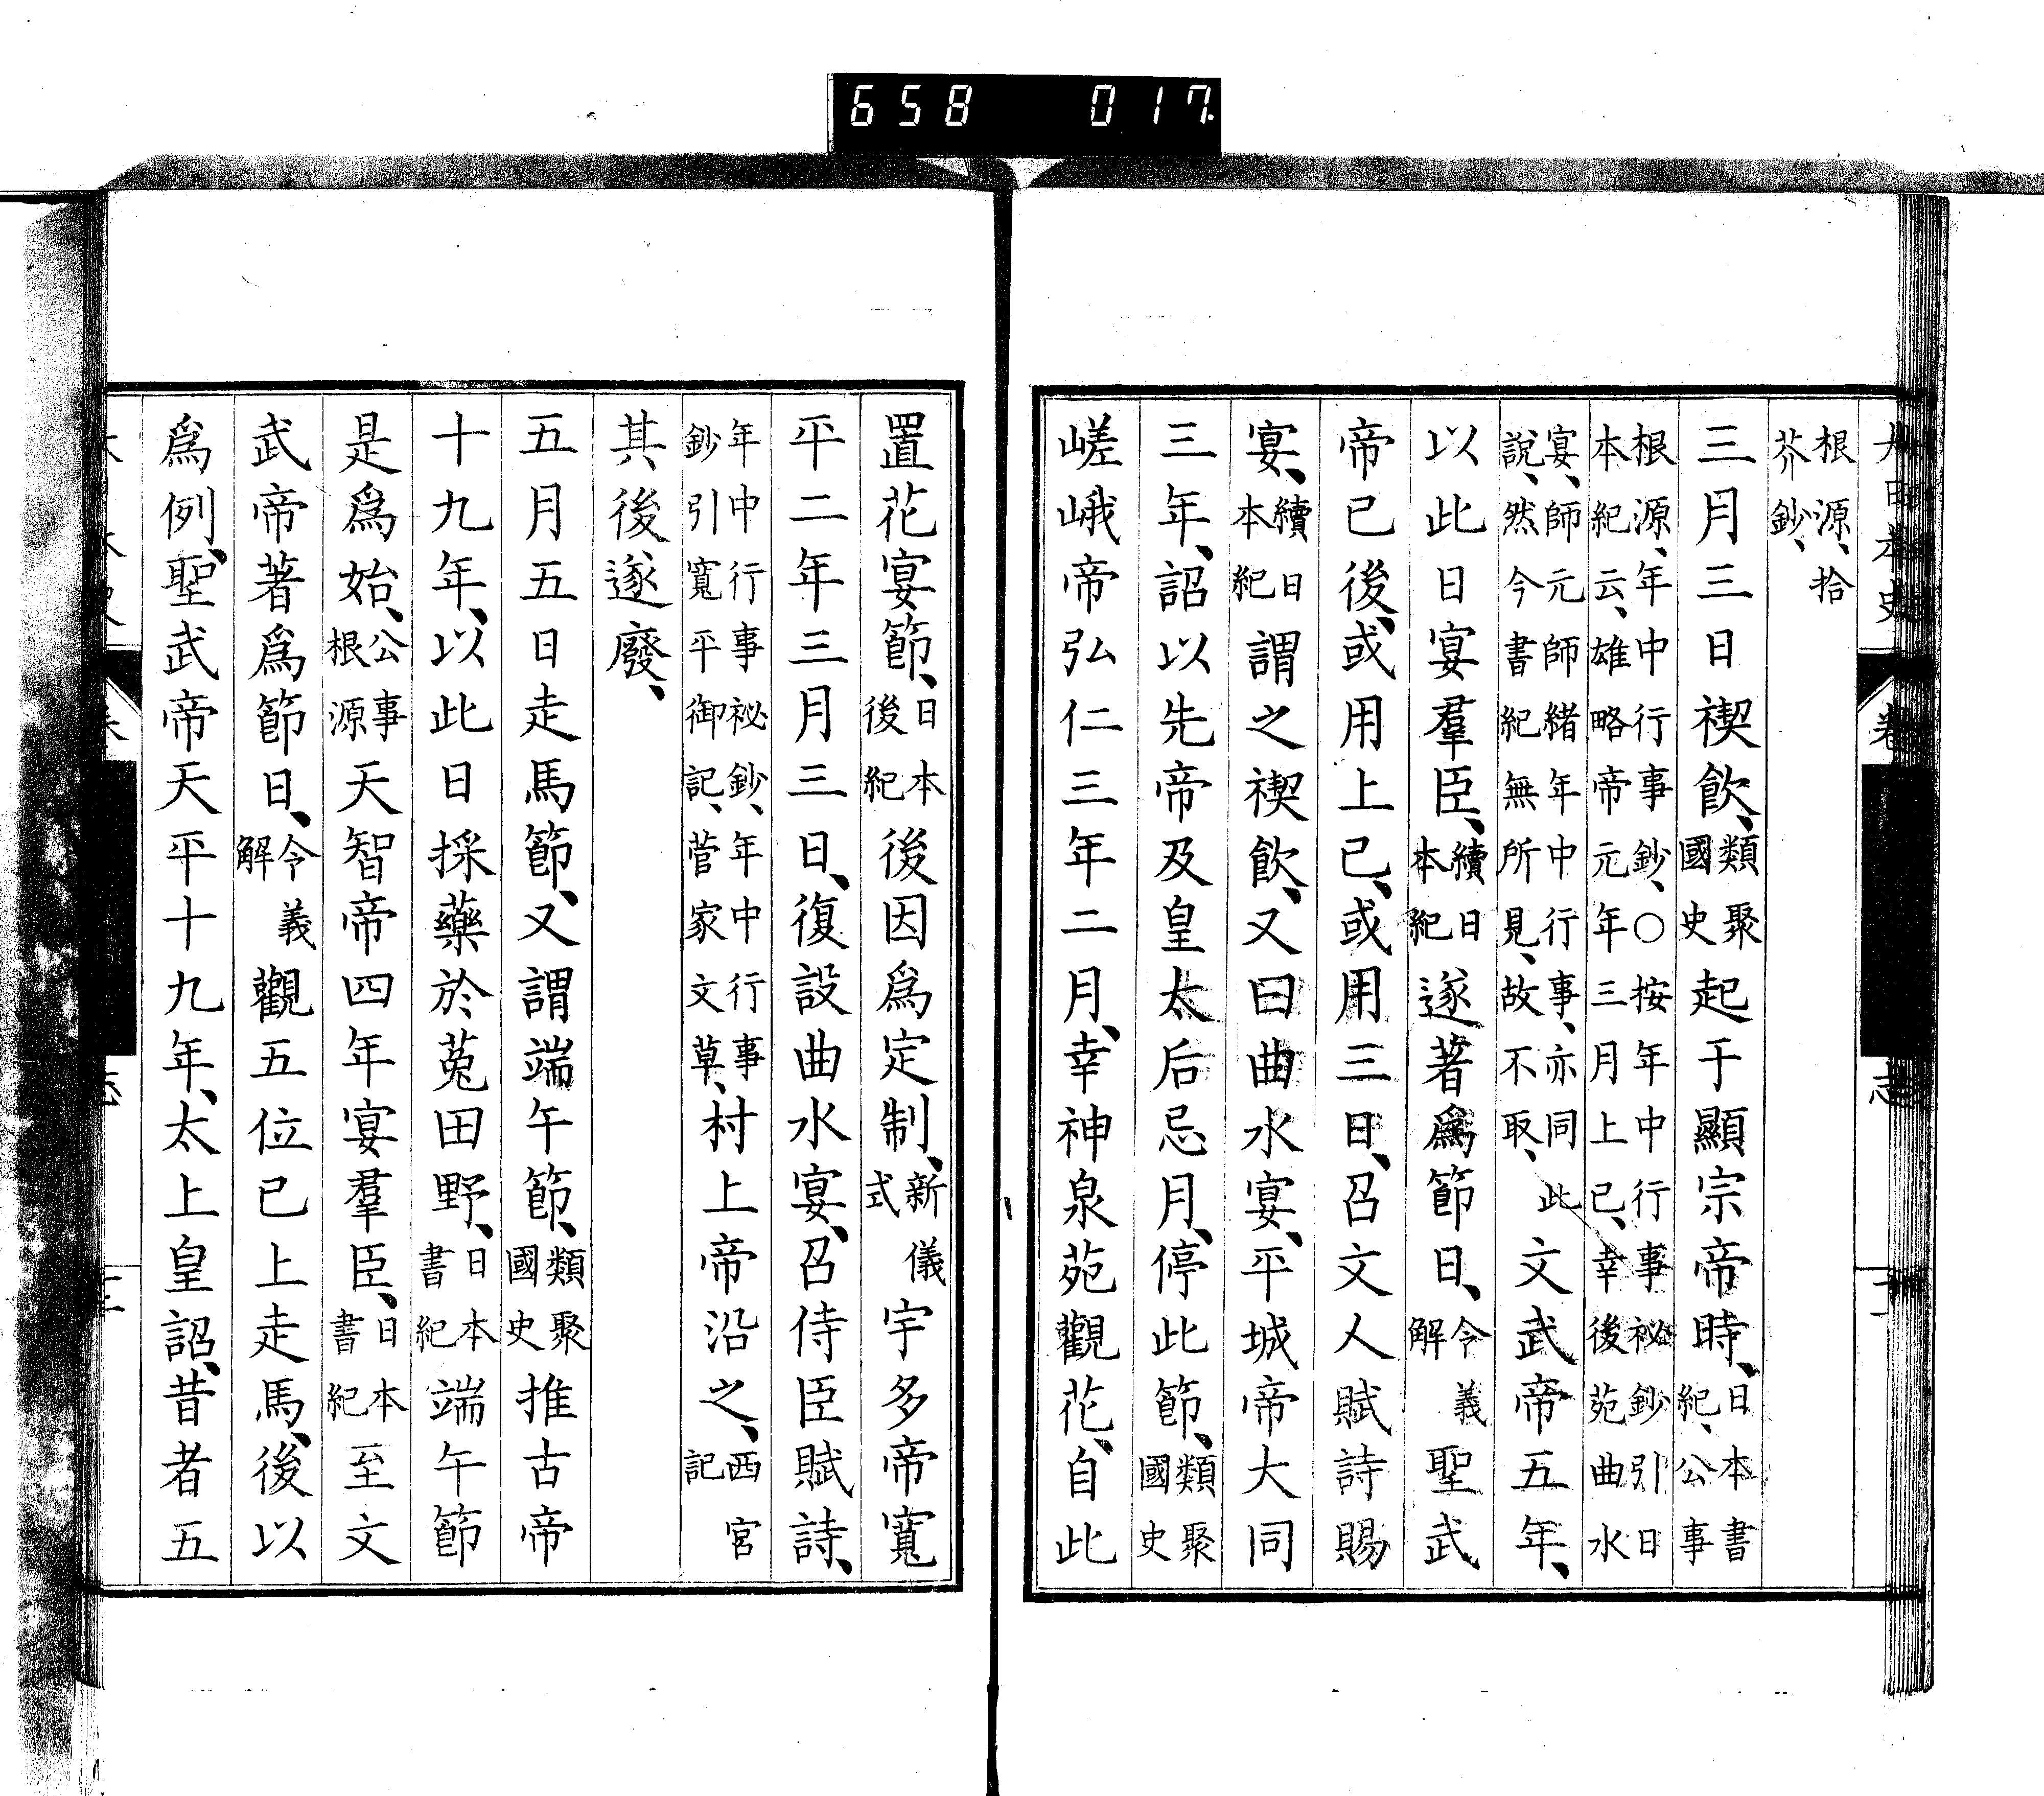 大日本史 卷 志
根源、拾芥鈔、
三月三日禊飮、類聚國史起于顯宗帝時、日本書紀、公事
根源、年中行事鈔、○按年中行事祕鈔引日本紀云、雄略帝元年三月上巳、幸後苑曲水
宴、師元師緒年中行事、亦同此說、然今書紀無所見、故不取、文武帝五年、
以此日宴羣臣、續日本紀遂著爲節日、令義解聖武
帝已後、或用上巳、或用三日、召文人賦詩賜
宴、續日本紀謂之禊飮、又曰曲水宴、平城帝大同
三年、詔以先帝及皇太后忌月、停此節、類聚國史
嵯峨帝弘仁三年二月、幸神泉苑觀花、自此
置花宴節、日本後紀後因爲定制、新儀式宇多帝寬
平二年三月三日、復設曲水宴、召侍臣賦詩、
年中行事祕鈔、年中行事鈔引寬平御記、菅家文草、村上帝沿之、西宮記
其後遂廢、
五月五日走馬節、又謂端午節、類聚國史推古帝
十九年、以此日採藥於菟田野、日本書紀端午節
是爲始、公事根源天智帝四年宴羣臣、日本書紀至文
武帝著爲節日、令義解觀五位已上走馬、後以
爲例、聖武帝天平十九年、太上皇詔、昔者五
658 017